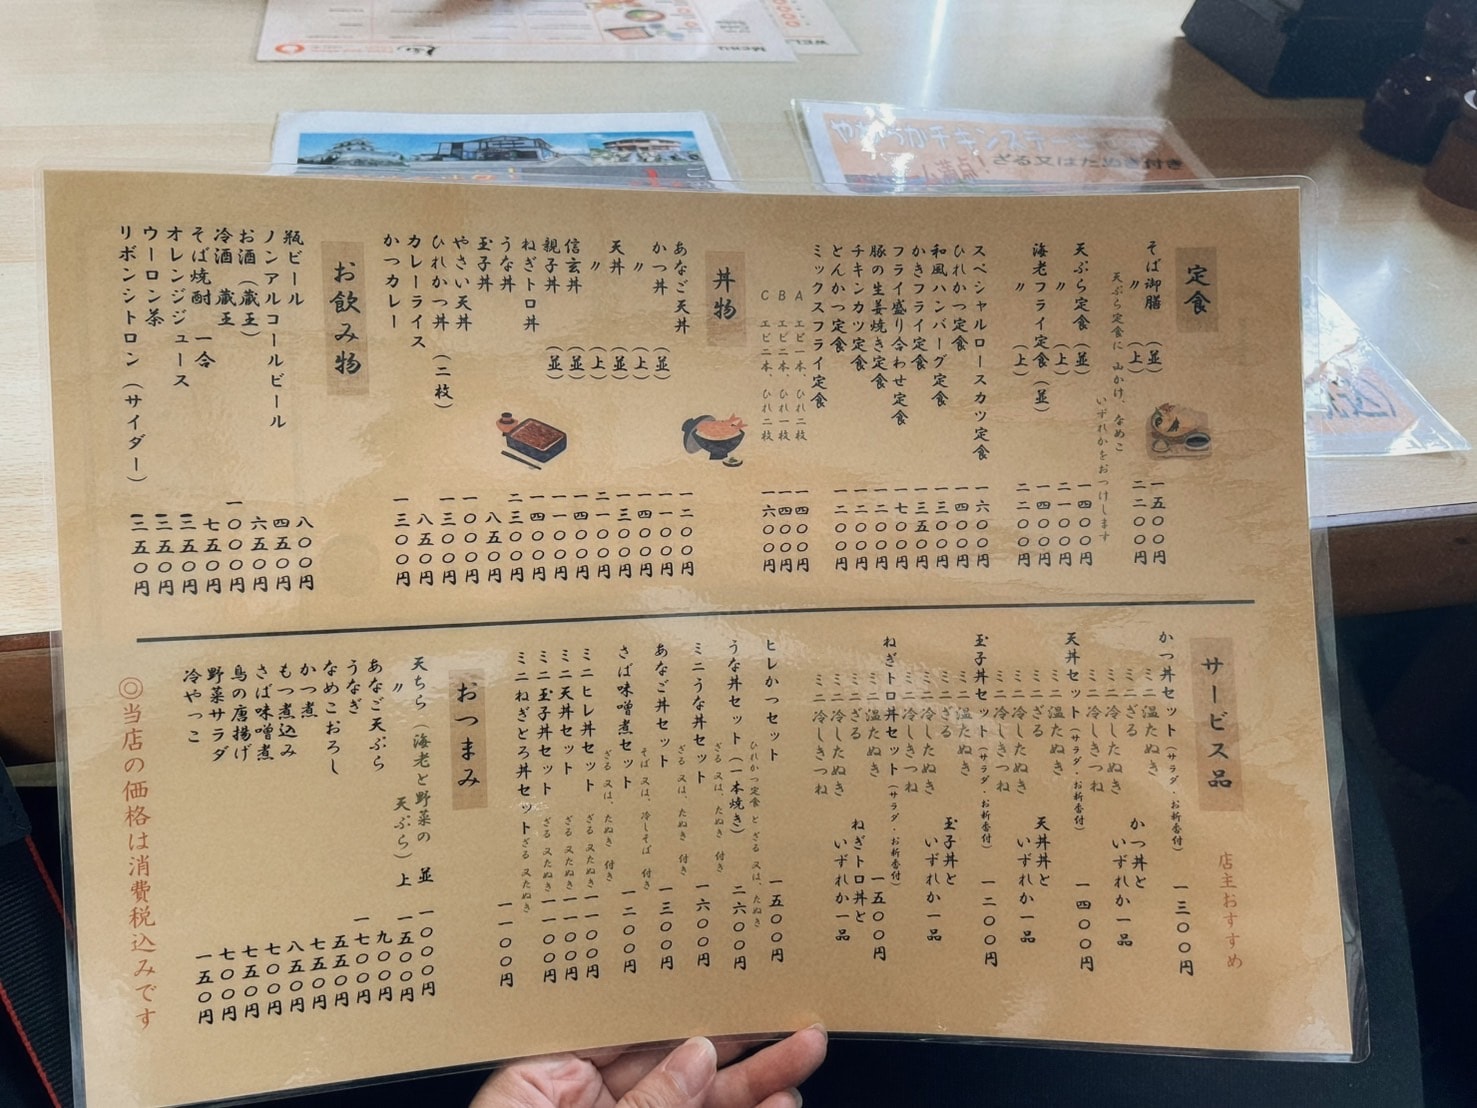 定食
そば御膳 (並) 一五〇〇円
〃 (上) 二二〇〇円
天ぷら定食に 山かけ、なめこ
いずれかをおつけします
天ぷら定食 (並) 一四〇〇円
〃 (上) 二一〇〇円
海老フライ定食 (並) 一四〇〇円
〃 (上) 二二〇〇円
スペシャルロースカツ定食 一六〇〇円
ひれかつ定食 一四〇〇円
和風ハンバーグ定食 一三〇〇円
かきフライ定食 一三五〇円
フライ盛り合わせ定食 一七〇〇円
豚の生姜焼き定食 一二〇〇円
チキンカツ定食 一一〇〇円
とんかつ定食 一二〇〇円
ミックスフライ定食
A エビ一本、ひれ二枚 一四〇〇円
B エビ二本、ひれ一枚 一四〇〇円
C エビ二本、ひれ二枚 一六〇〇円
丼物
あなご天丼 一二〇〇円
かつ丼 (並) 一一〇〇円
〃 (上) 一三〇〇円
天丼 (並) 一四〇〇円
〃 (上) 二一〇〇円
信玄丼 (並) 一四〇〇円
親子丼 (並) 一一〇〇円
ねぎトロ丼 一四〇〇円
うな丼 二三〇〇円
玉子丼 八五〇円
やさい天丼 一〇〇〇円
ひれかつ丼 (二枚) 一三〇〇円
カレーライス 八五〇円
かつカレー 一三〇〇円
お飲み物
瓶ビール 八〇〇円
ノンアルコールビール 四五〇円
お酒(蔵王) 六五〇円
冷酒 蔵王 一〇〇〇円
そば焼酎 一合 七五〇円
オレンジジュース 二五〇円
ウーロン茶 二五〇円
リボンシトロン(サイダー) 二五〇円
サービス品
店主おすすめ
かつ丼セット(サラダ・お新香付) 一三〇〇円
ミニ温たぬき
ミニざる
ミニ冷したぬき
ミニ冷しきつね
かつ丼と
いずれか一品
天丼セット(サラダ・お新香付) 一四〇〇円
ミニ温たぬき
ミニざる
ミニ冷したぬき
ミニ冷しきつね
天丼丼と
いずれか一品
玉子丼セット(サラダ・お新香付) 一二〇〇円
ミニ温たぬき
ミニざる
ミニ冷したぬき
ミニ冷しきつね
玉子丼と
いずれか一品
ねぎトロ丼セット(サラダ・お新香付) 一五〇〇円
ミニ温たぬき
ミニざる
ミニ冷したぬき
ミニ冷しきつね
ねぎトロ丼と
いずれか一品
ヒレかつセット 一五〇〇円
ひれかつ定食 と ざる 又は、たぬき
うな丼セット(一本焼き) 二六〇〇円
ざる 又は、たぬき 付き
ミニうな丼セット 一六〇〇円
ざる 又は、たぬき 付き
あなご丼セット 一三〇〇円
そば 又は、冷しそば 付き
さば味噌煮セット 一二〇〇円
ざる 又は、たぬき 付き
ミニヒレ丼セット ざる 又たぬき 一一〇〇円
ミニ天丼セット ざる 又たぬき 一一〇〇円
ミニ玉子丼セット ざる 又たぬき 一一〇〇円
ミニねぎとろ丼セット ざる 又たぬき 一一〇〇円
おつまみ
天ちら(海老と野菜の 並 一〇〇〇円
〃 天ぷら) 上 一五〇〇円
あなご天ぷら 九〇〇円
うなぎ 一七〇〇円
なめこおろし 五五〇円
かつ煮 七五〇円
もつ煮込み 八五〇円
さば味噌煮 七〇〇円
鳥の唐揚げ 七五〇円
野菜サラダ 七〇〇円
冷やっこ 一五〇円
◎当店の価格は消費税込みです
MENU
やわらかチキンステーキ
ざる又はたぬき付き